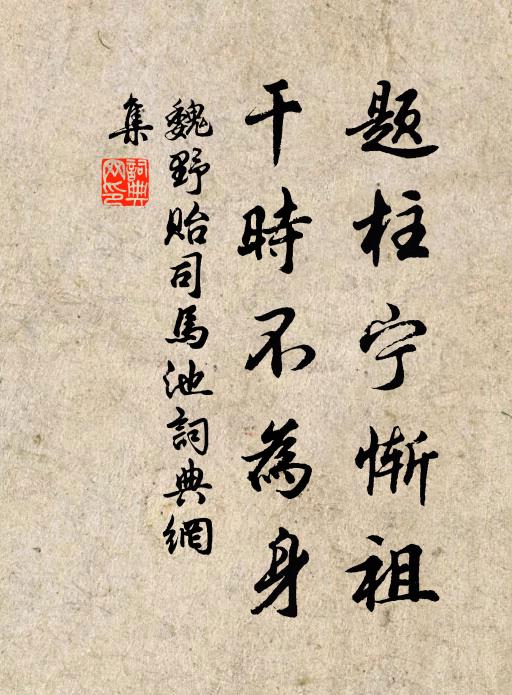 题柱宁惭祖
干時不為身
魏野貽司馬池詞典網
集
詞典网印